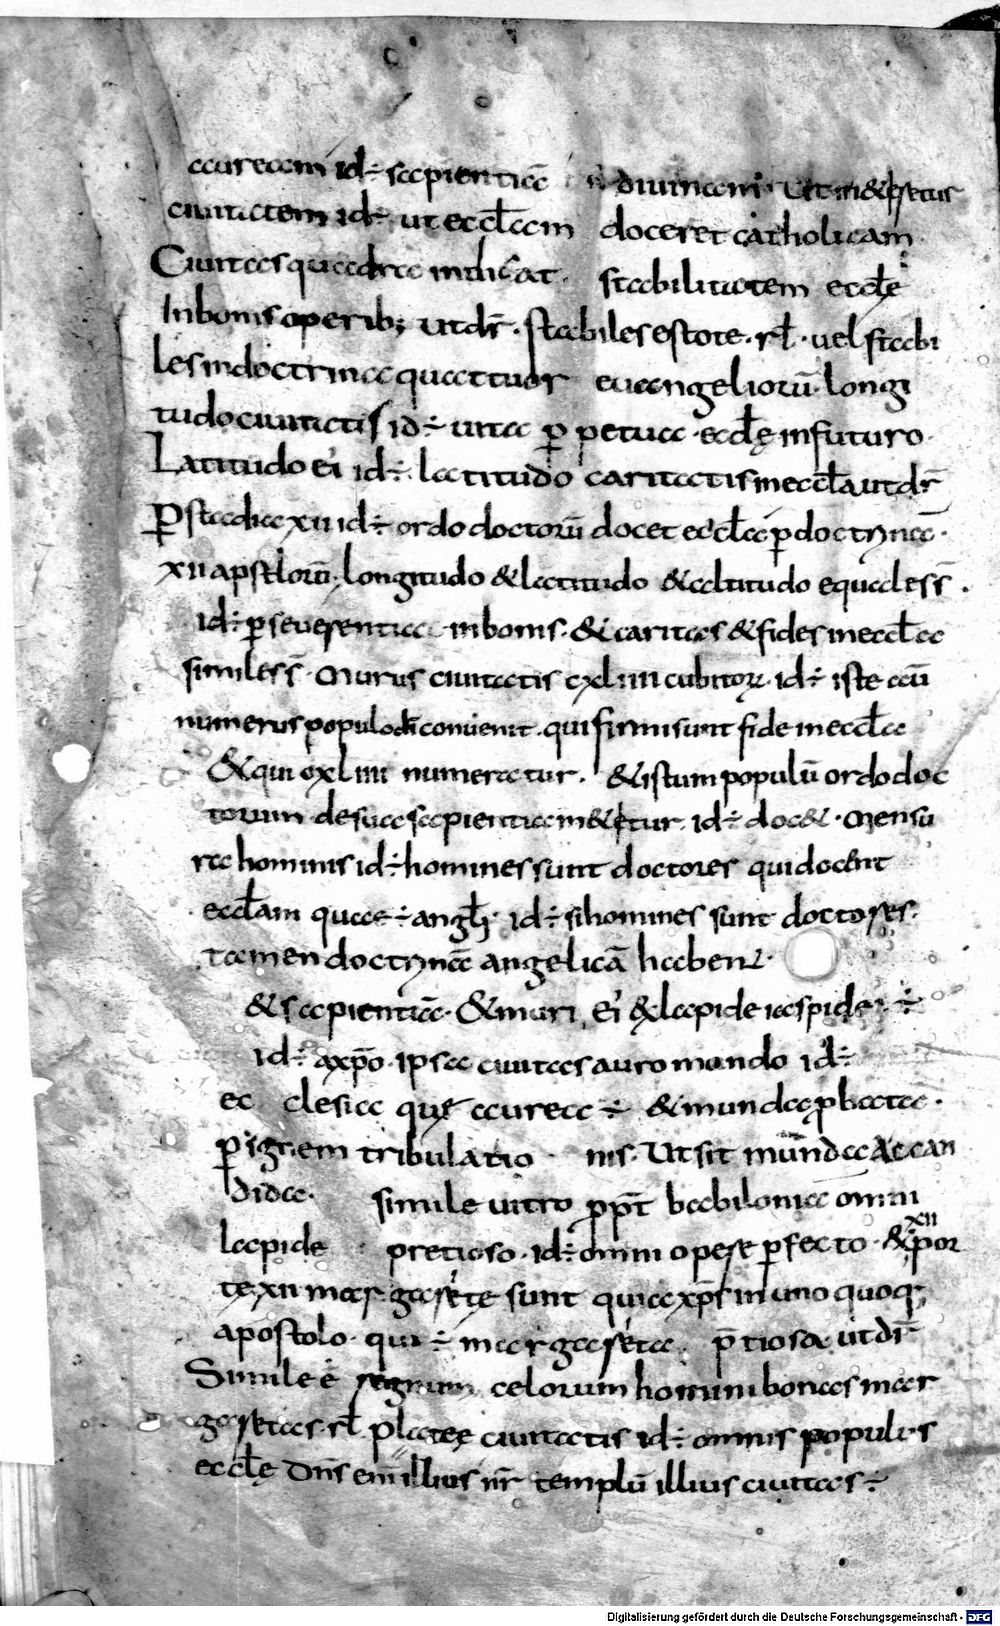 auream id÷ sapientiā diuinam. Ut m&iretur
ciuitatem id÷ ut eccłam doceret catholicam
Ciuitas quadra indicat. stabilitatem eccłę
In bonis operib; ut dr̄. stabiles estote. rł. uel stabi
les in doctrina quattuor euangeliorū. longi
tudo ciuitatis id÷ uita ꝑpetua. eccłę in futuro.
Latitudo ei id÷ latitudo caritatis in eccła ut dr̄
Ꝑ stadia xii id÷ ordo doctorū docet eccła ꝑ doctrinā.
xii apstłorū. longitudo & latitudo & altitudo equales s̄.
id÷ ꝑseuerentia in bonis. & caritas & fides in eccła
similes s̄. Murus ciuitatis cxliiii cubitoꝝ. id÷ iste aū
numerus populo dī conuenit. qui firmi sunt fide in eccła
& qui cxliiii numeratur. & istum populū ordo doc
torum de sua sapientia m&etur. id÷ doc&. Mensu
ra hominis id÷ homines sunt doctores qui docent
eccłam quae ÷ angłi. id÷ si homines sunt doctores.
tamen doctrinā angelicā habent.
& sapientiā. & muri ei &x lapide iaspide ÷
id÷ a xp̄o. ipsa ciuitas auro mundo id÷
ec clesia quę aurea ÷ & munda ꝓbata.
ꝑ ignem tribulatio nis. Ut sit munda ac can
dida. simile uitro ꝓpt̄ babilonia omni
lapide pretioso. id÷ omni opere ꝑfecto. & xii por
te xii margarete sunt quia xps̄ in uno quoq;
apostolo. qui ÷ margareta p̄tiosa ut dr̄
Simile ē regnum celorum homini bonas mar
garetas. rł. Plateę ciuitatis id÷ omnis populus
eccłę Dn̄s em̄ illius nr̄ templū illius ciuitas ÷
Digitalisierung gefördert durch die Deutsche Forschungsgemeinschaft - DFG